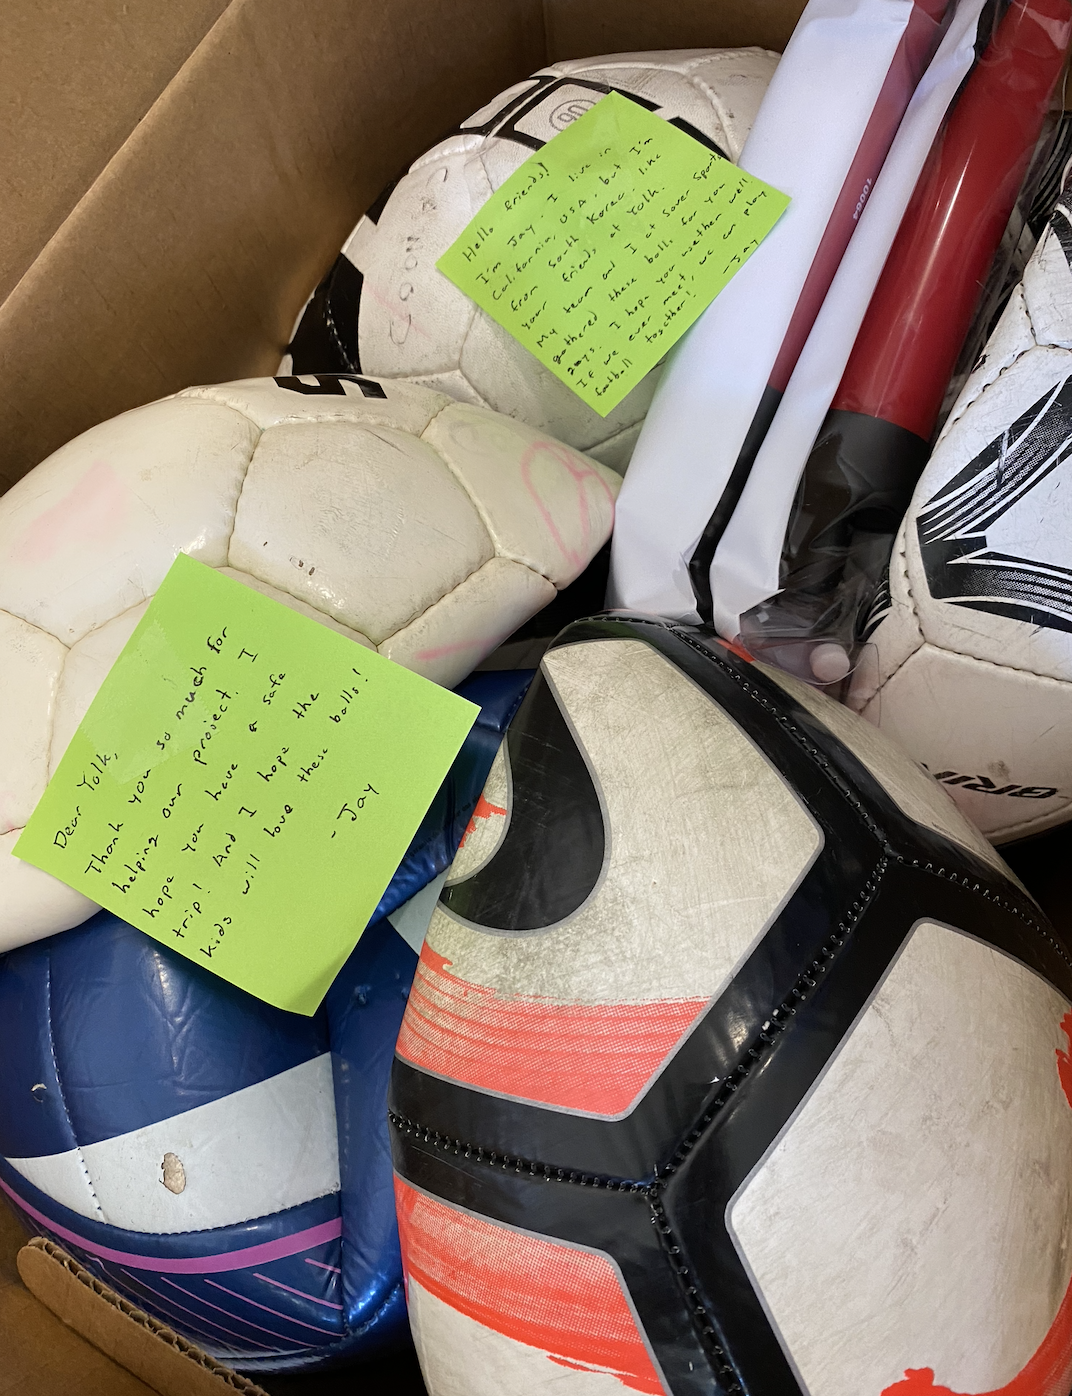 Hello friends!
I'm Jay. I live in
California, USA but I'm
from South Korea, like
your friends at Yolk.
My team and I at Sover Sports
gathered these balls for you
I hope you well
If we ever meet, we can play
football together! -Jay
Dear Yolk,
Thank you so much for
helping our project. I
hope you have a safe
trip! And I hope the
kids will love these balls!
- Jay
5